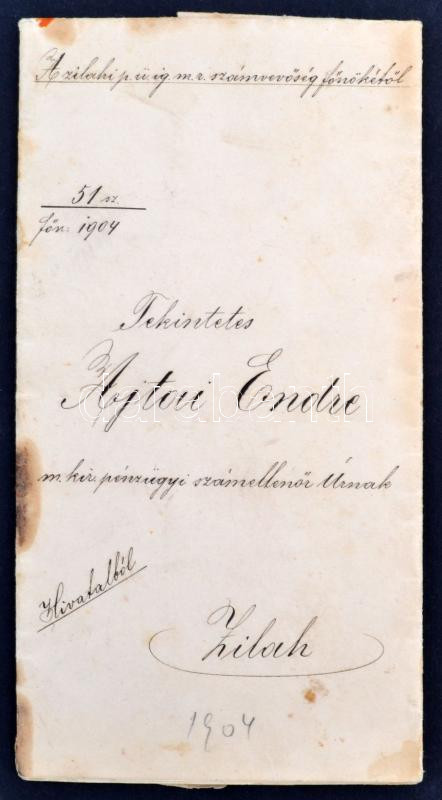 A zilahi p. ü. ig. m. v. számvevőség főnökétől
51 sz.
főn: 1904
Tekintetes
Ajtai Endre
darabanth
m. kir. pénzügyi számellenőr Úrnak
Hivatalból
Zilah
1904